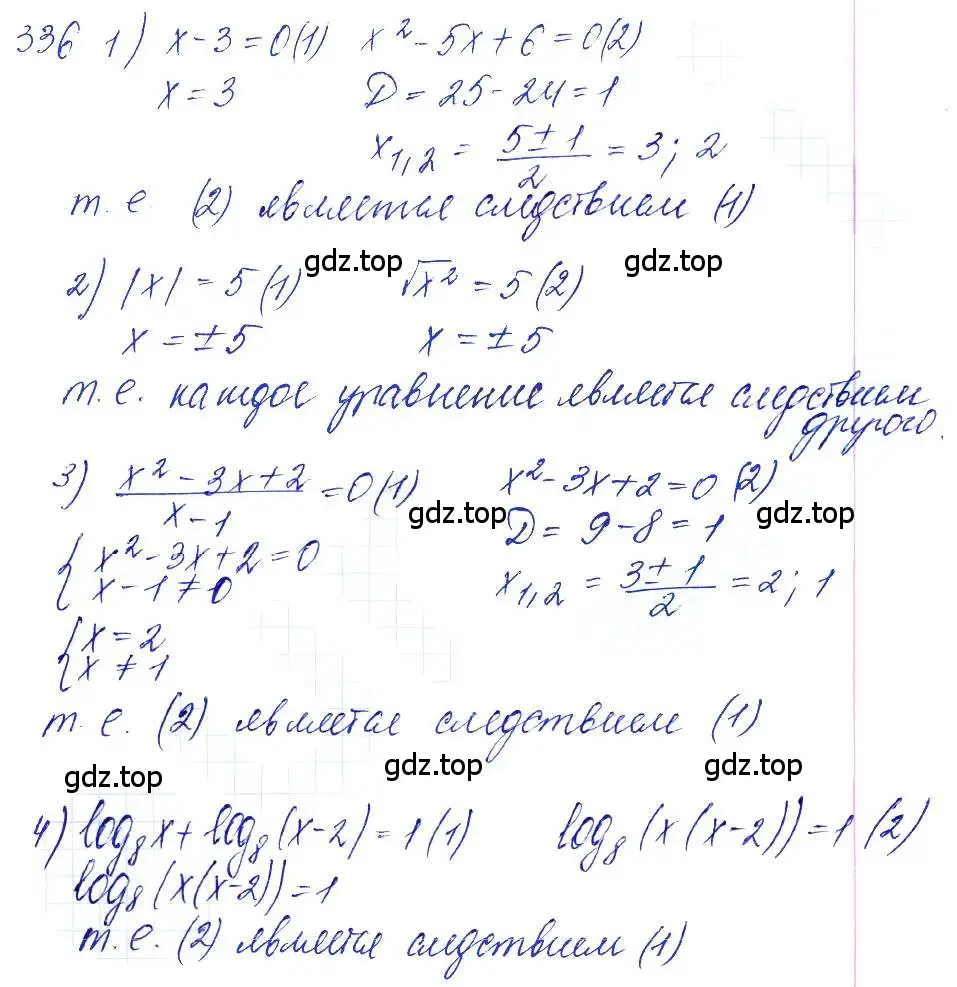 336 1) x-3=0(1) x²-5x+6=0(2)
x=3 D=25-24=1
x₁,₂ = (5±1)/2 = 3; 2
т. е. (2) является следствием (1)
gdz.top gdz.top
2) |x| = 5 (1) √x² = 5 (2)
x = ±5 x = ±5
т. е. каждое уравнение является следствием
другого.
3) (x²-3x+2)/(x-1) =0(1) x²-3x+2=0 (2)
gdz.top gdz.top
{ x²-3x+2=0 D= 9-8=1
x-1≠0 x₁,₂ = (3±1)/2 = 2; 1
{ x=2
x ≠ 1
т. е. (2) является следствием (1)
gdz.top gdz.top gdz.top
4) log₈x+log₈(x-2)=1(1) log₈(x(x-2))=1 (2)
log₈(x(x-2))=1
т. е. (2) является следствием (1)